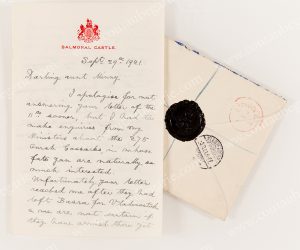 BALMORAL CASTLE.
Sept. 29th 1921.
Darling aunt Minny
I apologise for not
answering your letter of the
11th sooner, but I had to
make enquiries from my
Ministers about the 275
Cossacks in whose
fate you are naturally so
much interested.
Unfortunately your letter
reached me after they had
left Basra for Vladivostock
& we are not certain if
they have arrived there yet